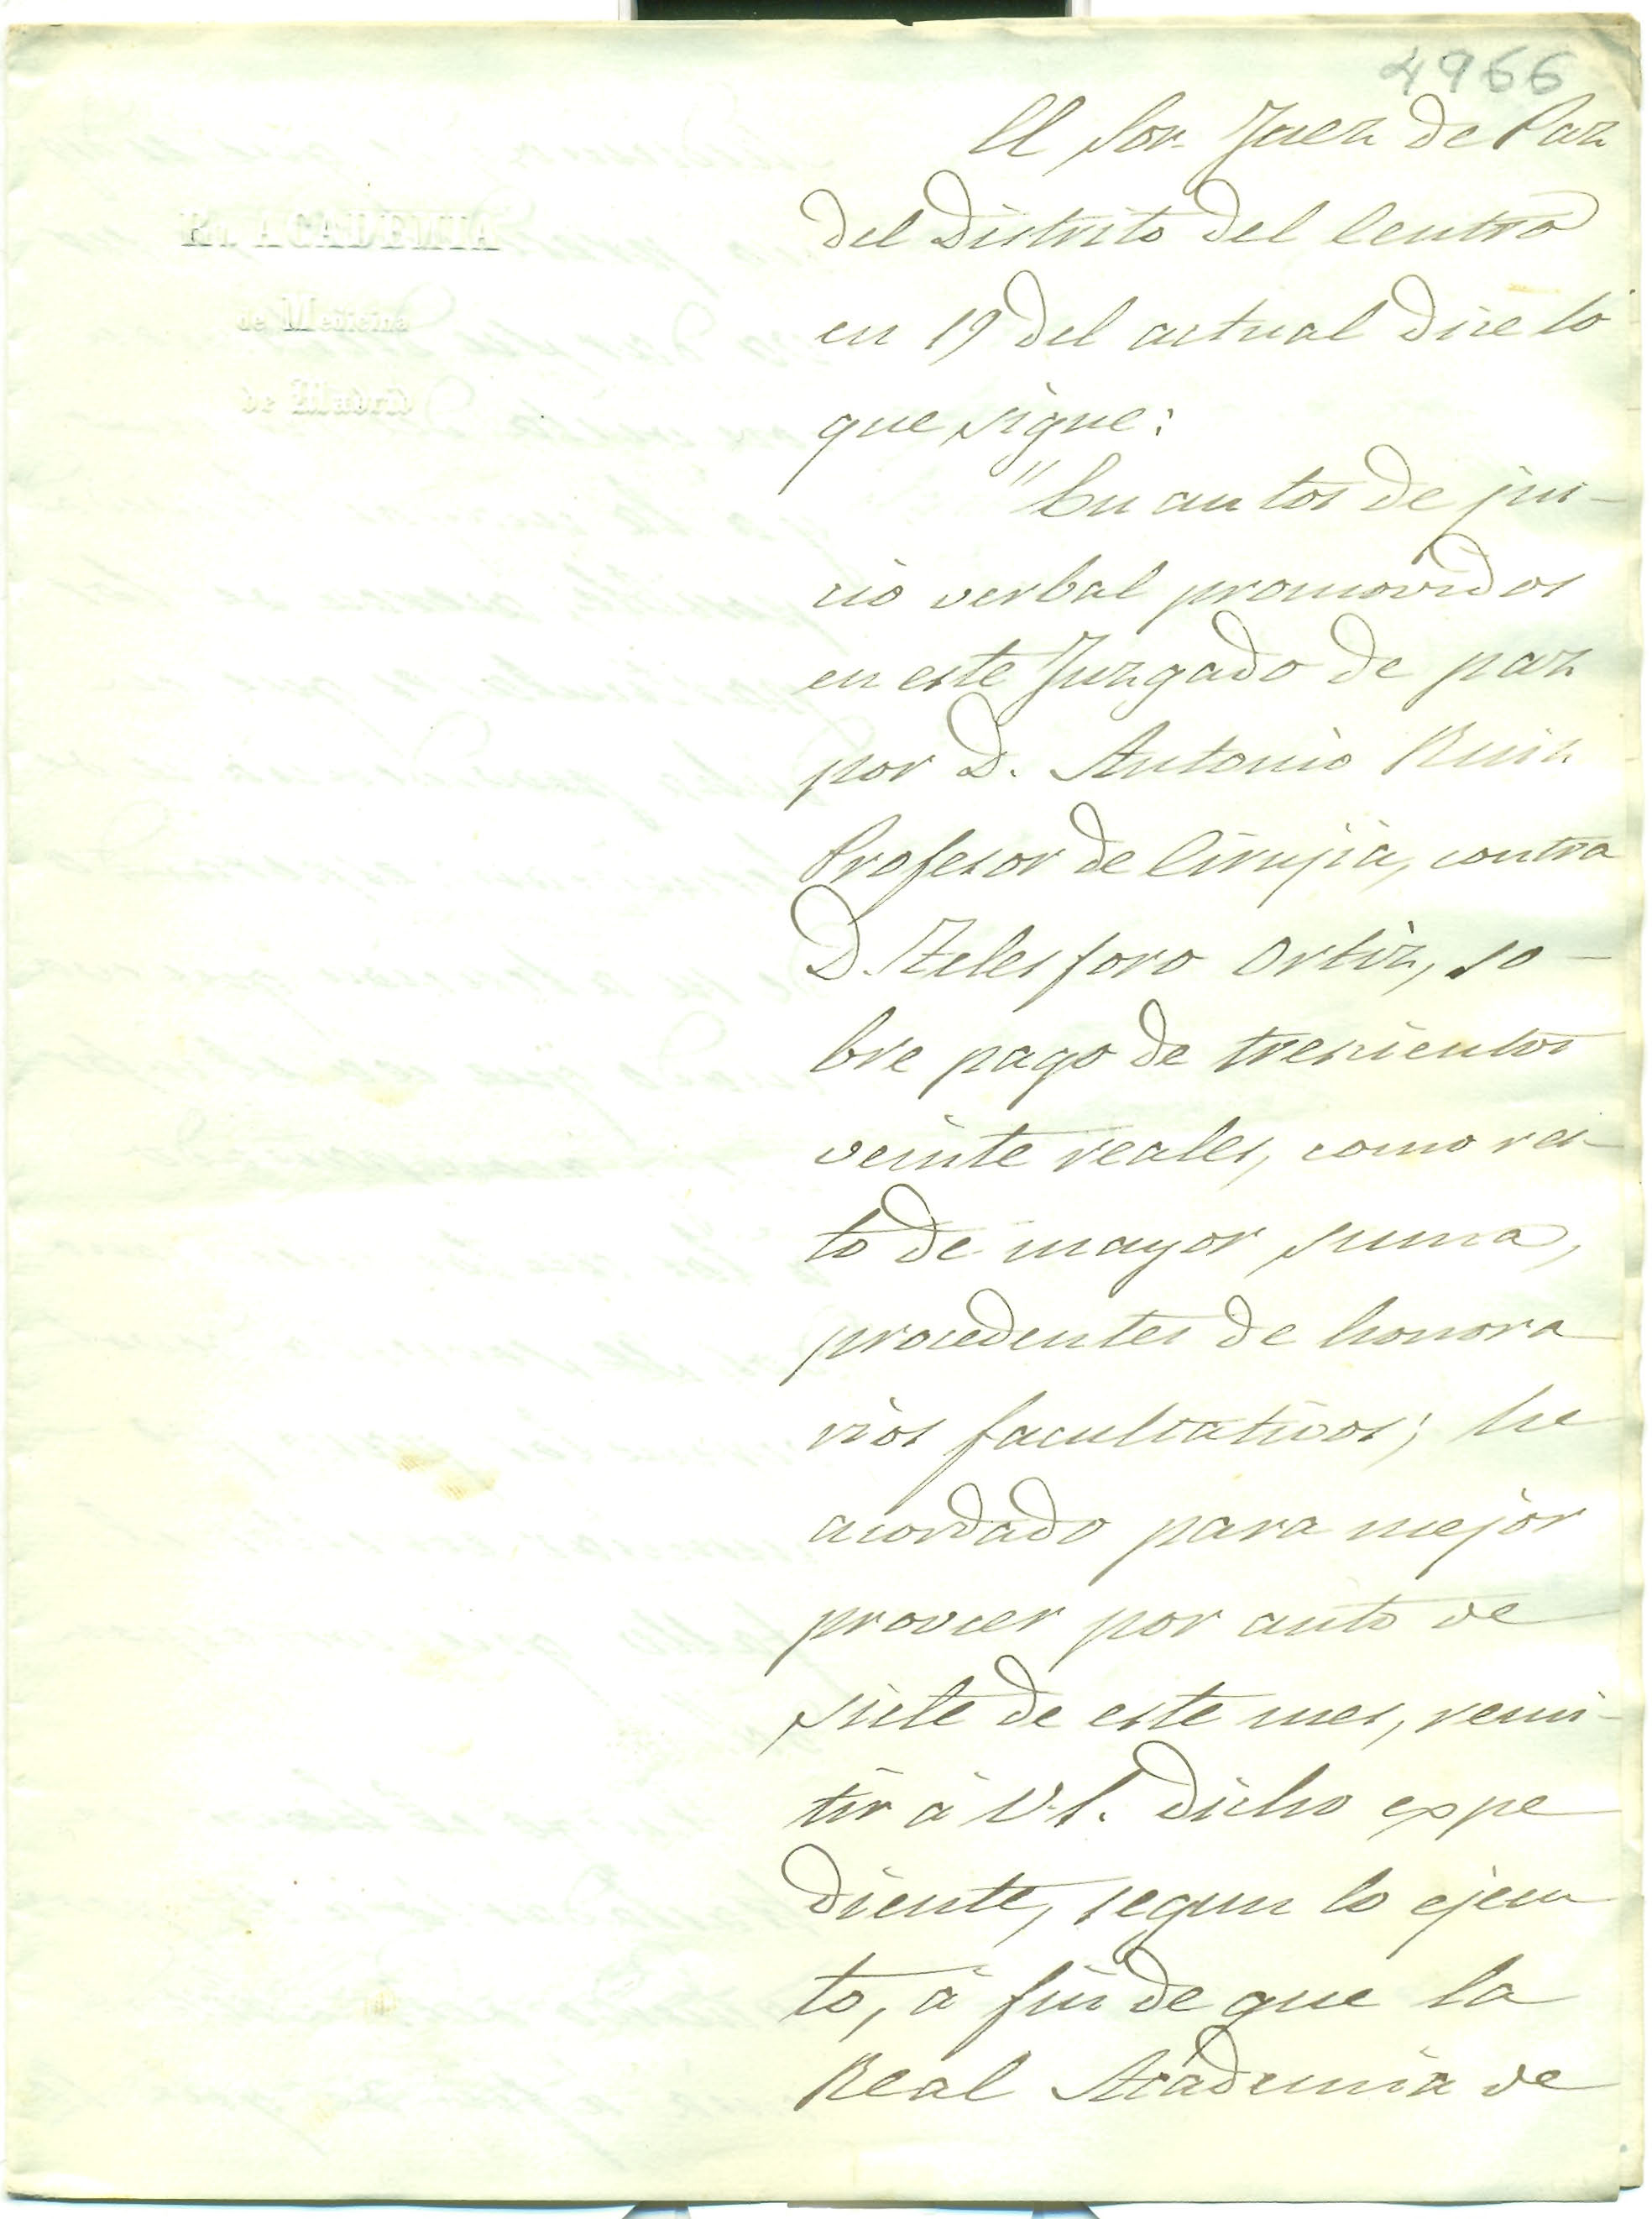 4966
Rl. ACADEMIA
de Medicina
de Madrid
El Sor. Juez de Paz
del Distrito del Centro
en 19 del actual dice lo
que sigue:
"En autos de jui-
cio verbal promovidos
en este Juzgado de paz
por D. Antonio Ruiz
Profesor de Cirujia, contra
D. Telesforo Ortiz, so-
bre pago de trescientos
veinte reales, como res-
to de mayor suma,
procedentes de honora
rios facultativos; he
acordado para mejor
proveer por auto de
siete de este mes, remi-
tir á V.S. dicho expe
diente, segun lo ejecu
to, á fin de que la
Real Academia de